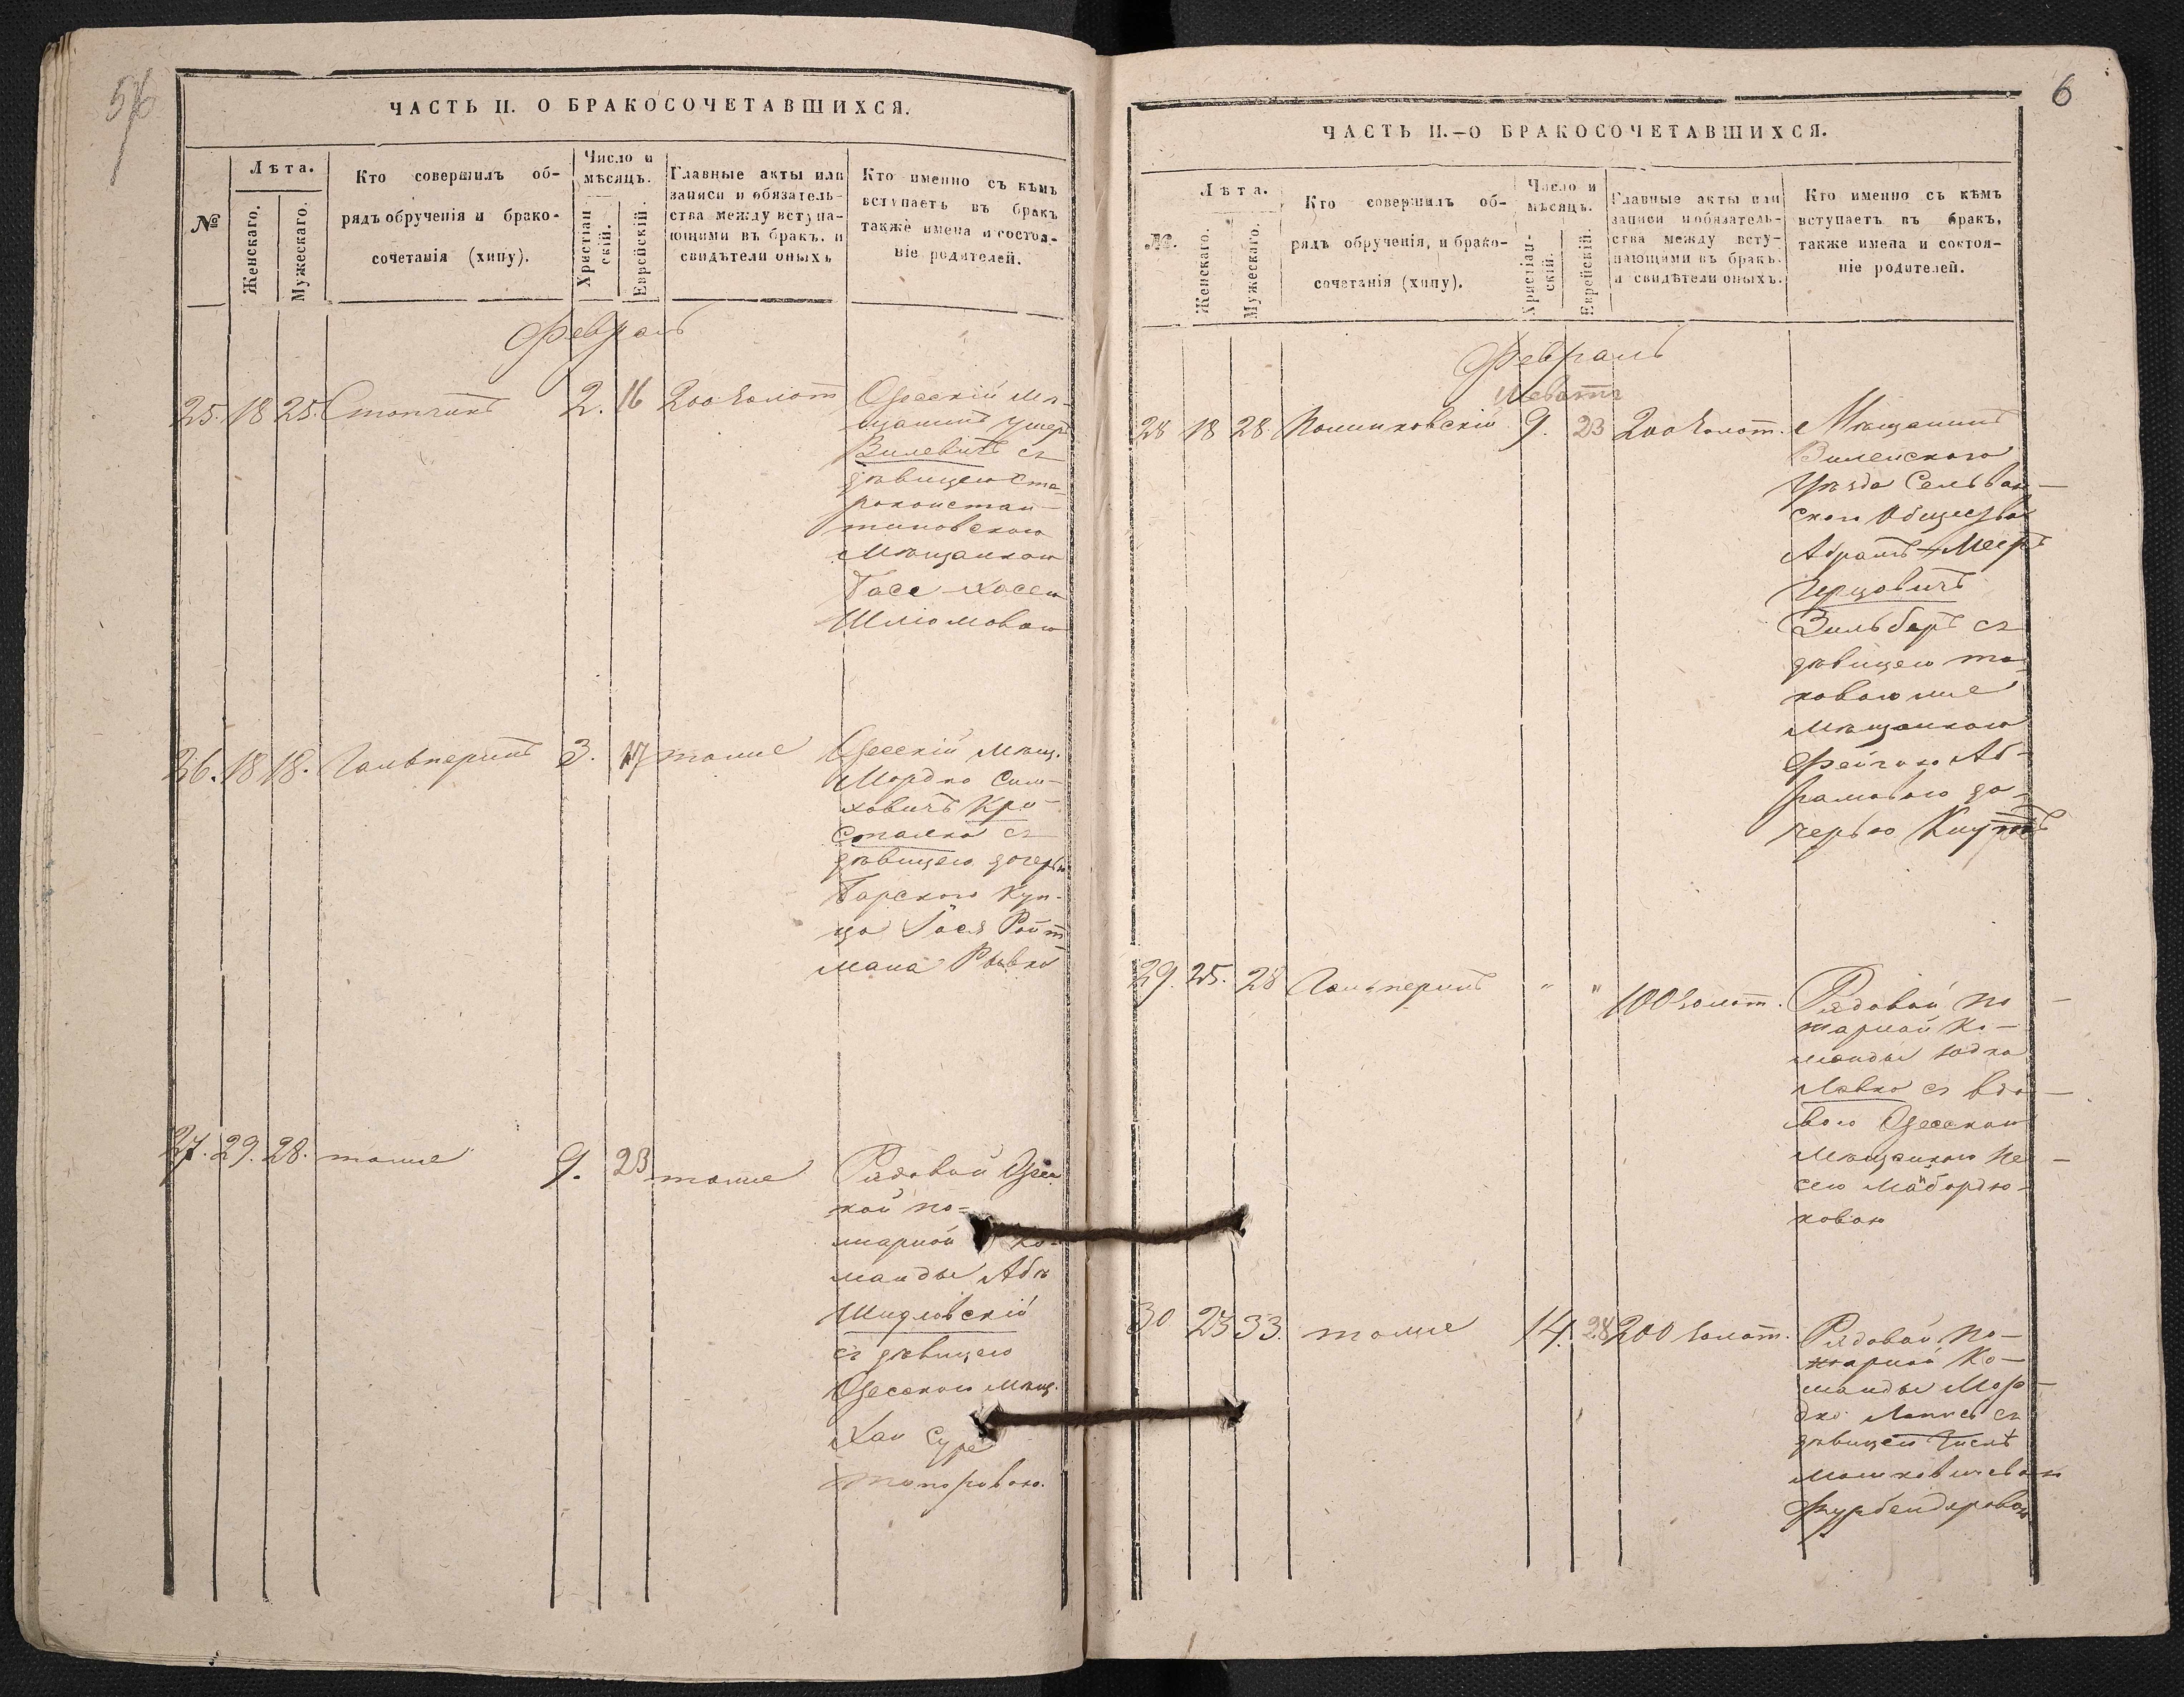 ЧАСТЬ II. О БРАКОСОЧЕТАВШИХСЯ.
№
Лѣта.
Женскаго.
Мужескаго.
Кто совершилъ об-
рядъ обрученія и брако-
сочетанія (хипу).
Число и
мѣсяцъ.
Христіан
скій.
Еврейскій.
Главные акты или
записи и обязатель-
ства между вступа-
ющими въ бракъ. и
свидѣтели оныхъ
Кто именно съ кѣмъ
вступаетъ въ бракъ
также имена и состоя-
ніе родителей.
Февраль
25. 18 25. 2. 16 200 золот
Одесскій Мѣ-
щанинъ Ушеръ
Вилевичъ съ
дѣвицею Ста-
роконстан-
тиновскою
Мѣщанкою
Шліомовою
26. 18 18. Гальперинъ 3. 17 тоже
Одесскій Мѣщ.
Мордко Сим-
ховичъ Кри-
сталка съ
дѣвицею дочерью
Барского Куп-
ца Іося Ройт-
мана Рывко
27. 29. 28. тоже 9. 23 тоже
Рядовой Одес
кой по-
жарной Ко-
манды Аба
Шидловскій
съ дѣвицею
Одесскою Мѣщ.
Хаи Суре
Топоровою.
6
ЧАСТЬ II.–О БРАКОСОЧЕТАВШИХСЯ.
№.
Лѣта.
Женскаго.
Мужескаго.
Кто совершилъ об-
рядъ обрученія, и брако-
сочетанія (хипу).
Число и
мѣсяцъ.
Христіан-
скій.
Еврейскій.
Главные акты или
записи и обязатель-
ства между всту-
пающими въ бракъ.
и свидѣтели оныхъ.
Кто именно съ кѣмъ
вступаетъ въ бракъ,
также имена и состоя-
ніе родителей.
Февраль
Шеватъ
28 18 28. 9. 23 200 золот.
Мѣщанинъ
Виленскаго
Уѣзда
скаго Общества
Абрамъ-Меръ
Герцовичъ
Зильберъ съ
дѣвицею та-
ковою же
Мѣщанкою
Фейгою Аб-
рамовою до-
черью
29. 25. 28 Гальперинъ " " 100 золот.
Рядовой по
жарной Ко-
манды Юдка
Левко съ вдо-
вою Одесскою
Мѣщанкою Пе-
сею
ковою
30 23 33. тоже 14. 28 200 золот.
Рядовой по-
жарной Ко-
манды Мор-
дко съ
дѣвицею
Мошковичевою